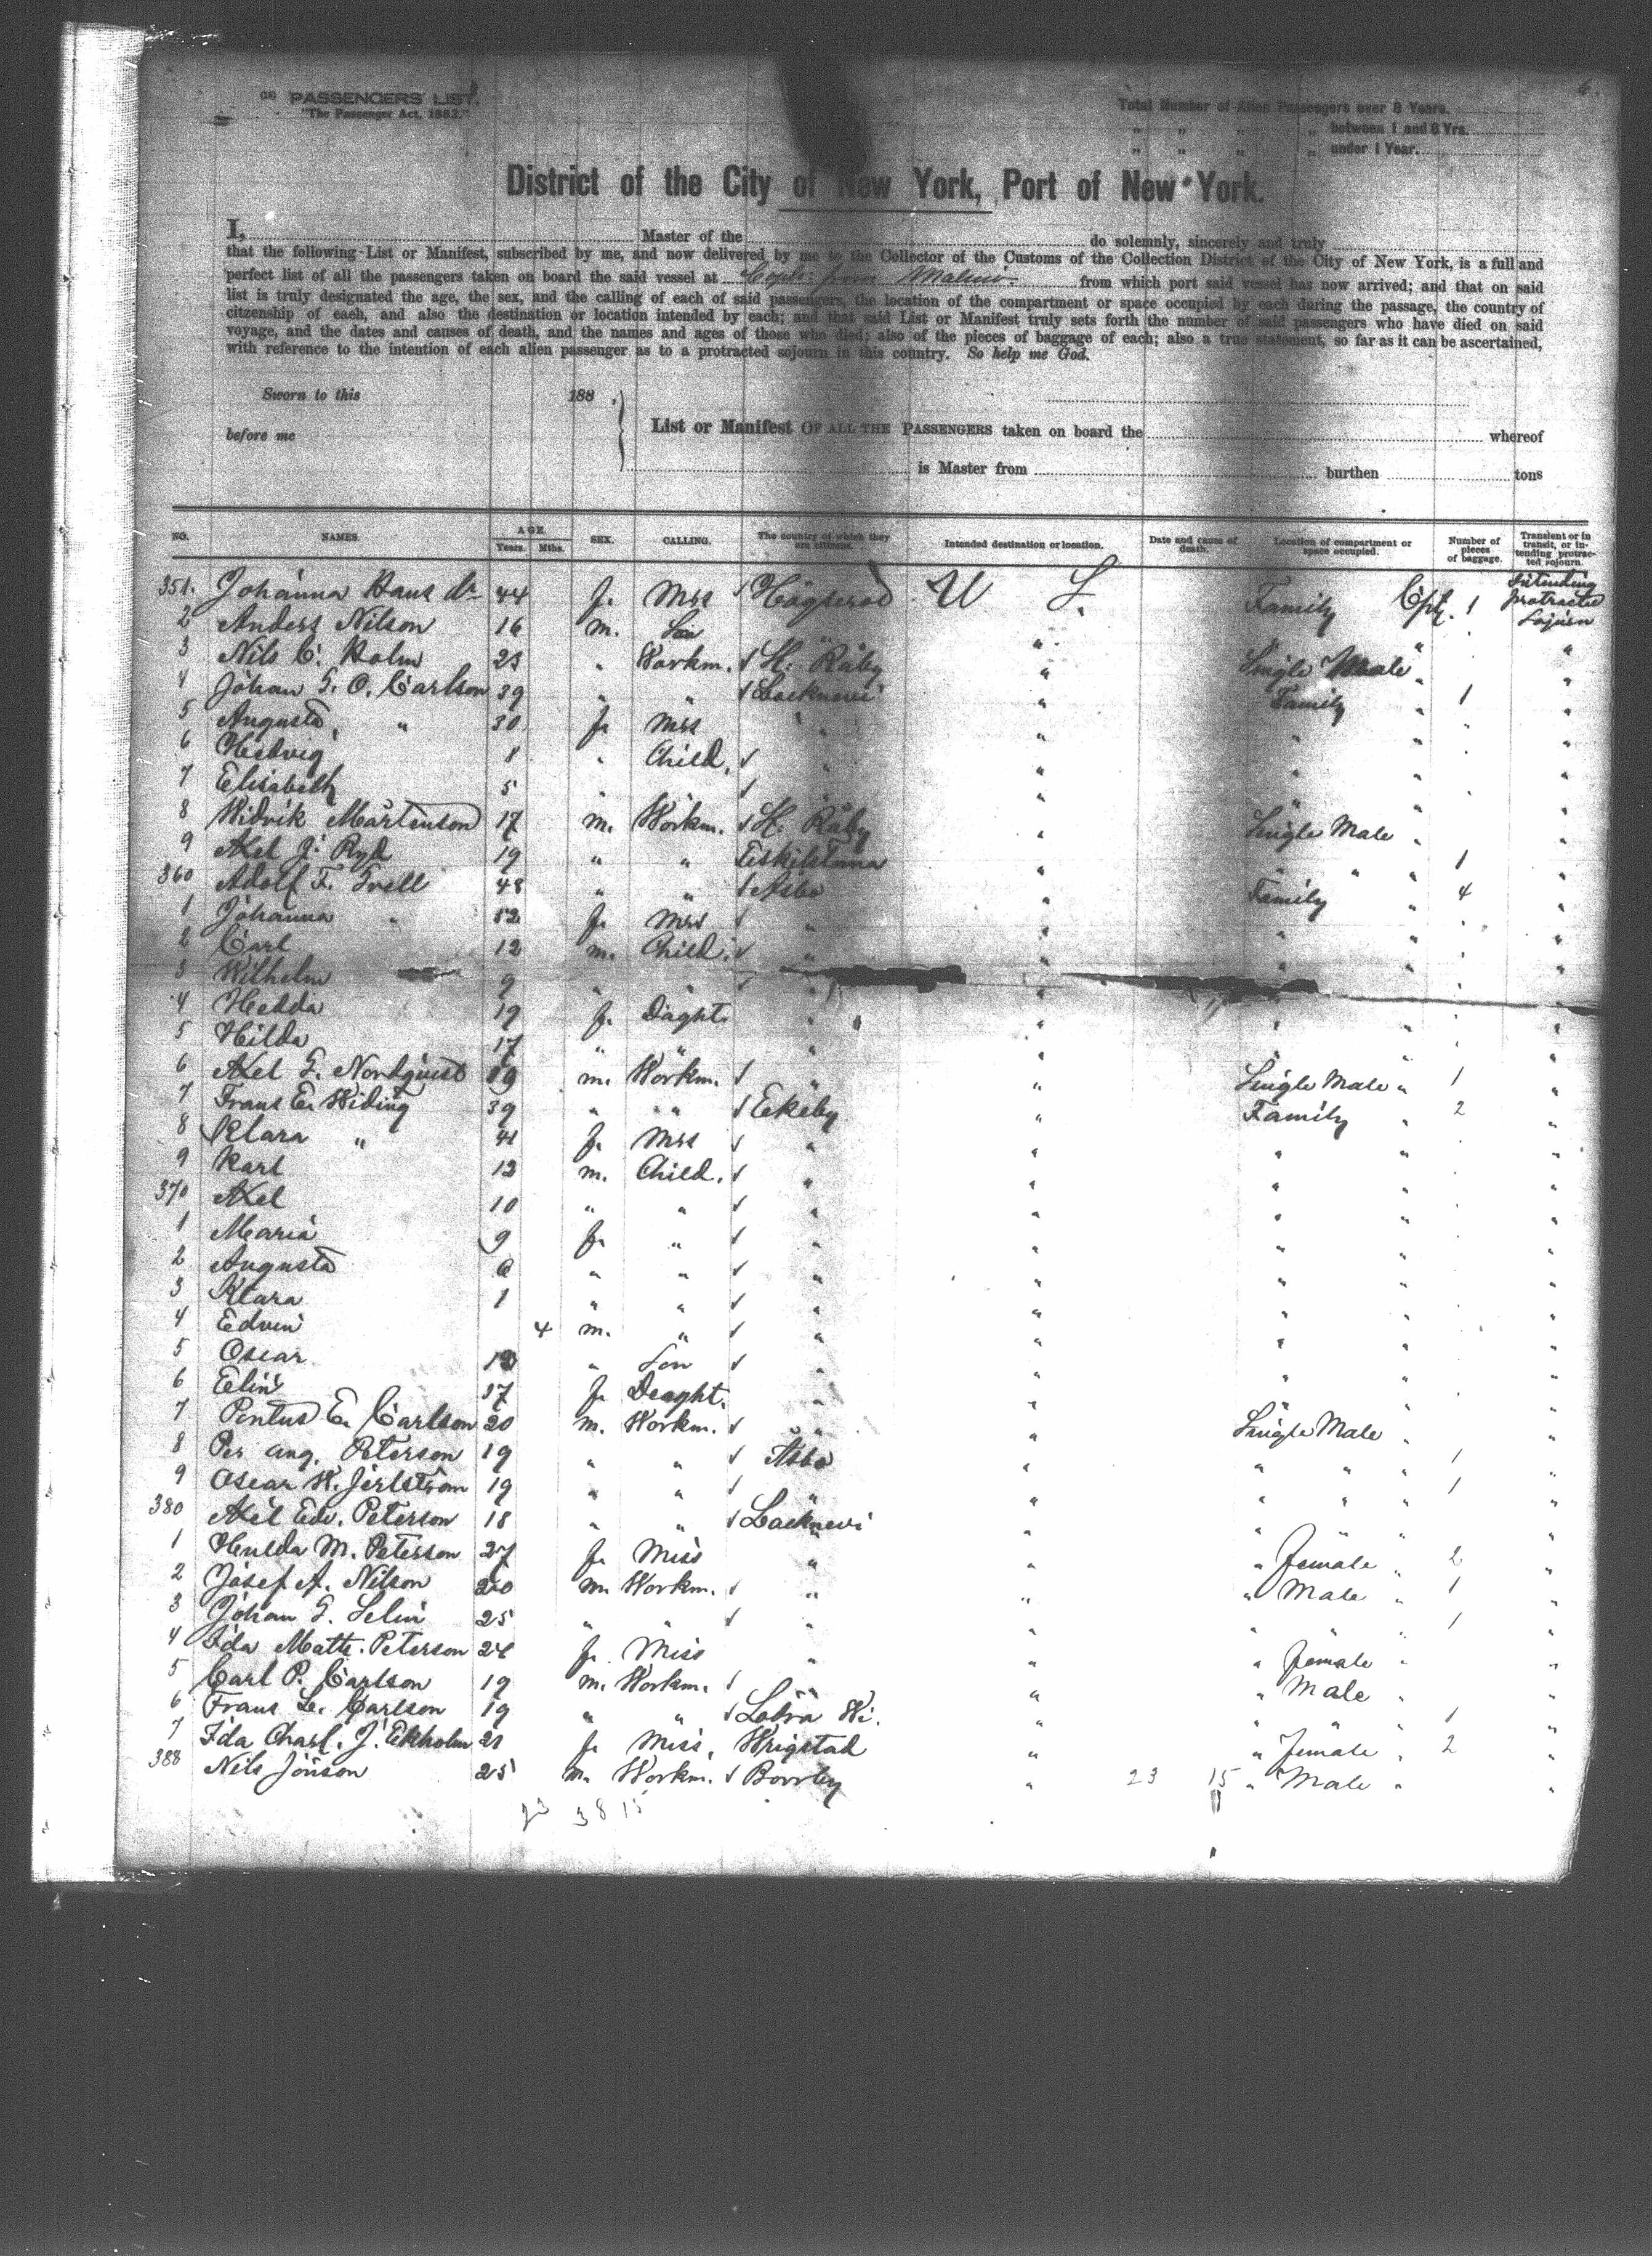 6.
(18) PASSENGERS' LIST.
"The Passenger Act, 1882."
Total Number of Alien Passengers over 8 Years.
" " " " between 1 and 8 Yrs.
" " " " under 1 Year.
District of the City of New York, Port of New York.
I, Master of the do solemnly, sincerely and truly
that the following List or Manifest, subscribed by me, and now delivered by me to the Collector of the Customs of the Collection District of the City of New York, is a full and
perfect list of all the passengers taken on board the said vessel at Coph: from Malmö. from which port said vessel has now arrived; and that on said
list is truly designated the age, the sex, and the calling of each of said passengers, the location of the compartment or space occupied by each during the passage, the country of
citzenship of each, and also the destination or location intended by each; and that said List or Manifest truly sets forth the number of said passengers who have died on said
voyage, and the dates and causes of death, and the names and ages of those who died; also of the pieces of baggage of each; also a true statement, so far as it can be ascertained,
with reference to the intention of each alien passenger as to a protracted sojourn in this country. So help me God.
Sworn to this 188 .
before me
List or Manifest OF ALL THE PASSENGERS taken on board the whereof
is Master from burthen tons
NO. NAMES. AGE. Years. Mths. SEX. CALLING. The country of which they are citizens. Intended destination or location. Date and cause of death. Location of compartment or space occupied. Number of pieces of baggage. Transient or in transit, or intending protracted sojourn.
351. Johanna Hans dr 44 f. Mrs Högserod U S. Family Cpt. 1 Intending protracted Sojurn
2 Anders Nilson 16 m. Son " " " "
3 Nils C. Holm 23 " Workm. H: Råby " Single Male " "
4 Johan G. O. Carlson 39 " " Locknevi " Family " 1 "
5 Augusta " 30 f. Mrs " " " " "
6 Hedvig 8 " Child. " " " " "
7 Elisabeth 5 " " " " " " "
8 Widrik Mårtenson 17 m. Workm. H: Råby " Single Male " "
9 Axel J. Ryd 19 " " Eskilstuna " " " " 1 "
360 Adolf F. Trell 48 " " Asbo " Family " 4 "
1 Johanna " 52 f. Mrs " " " " "
2 Carl 12 m. Child. " " " " "
3 Wilhelm 9 " " " " " " "
4 Hedda 19 f. Daght. " " " " "
5 Hilda 17 " " " " " " "
6 Axel G. Nordquist 19 m. Workm. " " Single Male " 1 "
7 Frans E. Widing 39 " " Ekeby " Family " 2 "
8 Klara " 41 f. Mrs " " " " "
9 Karl 12 m. Child. " " " " "
370 Axel 10 " " " " " " "
1 Maria 9 f. " " " " " "
2 Augusta 6 " " " " " " "
3 Klara 1 " " " " " " "
4 Edvin 4 m. " " " " " "
5 Oscar " Son " " " " "
6 Elin 17 f. Daught. " " " " "
7 Pontus E. Carlson 20 m. Workm. " " Single Male " "
8 Per Aug. Peterson 19 " " Asbo " " " " 1 "
9 Oscar W. Jerlström 19 " " " " " " " 1 "
380 Axel Edv. Peterson 18 " " Locknevi " " " " "
1 Hulda M. Peterson 27 f. Miss " " " Female " 2 "
2 Josef A. Nilson 20 m. Workm. " " " Male " 1 "
3 Johan G. Selin 25 " " " " " " " 1 "
4 Ida Math. Peterson 26 f. Miss " " " Female " "
5 Carl P. Carlson 19 m. Workm. " " " Male " "
6 Frans L. Carlson 19 " " Södra Wi. " " " " 1 "
7 Ida Charl. J. Ekholm 21 f. Miss. Wrigstad " " Female " 2 "
388 Nils Jönson 25 m. Workm. Borrby " 23 15 " Male " "
23 38 15